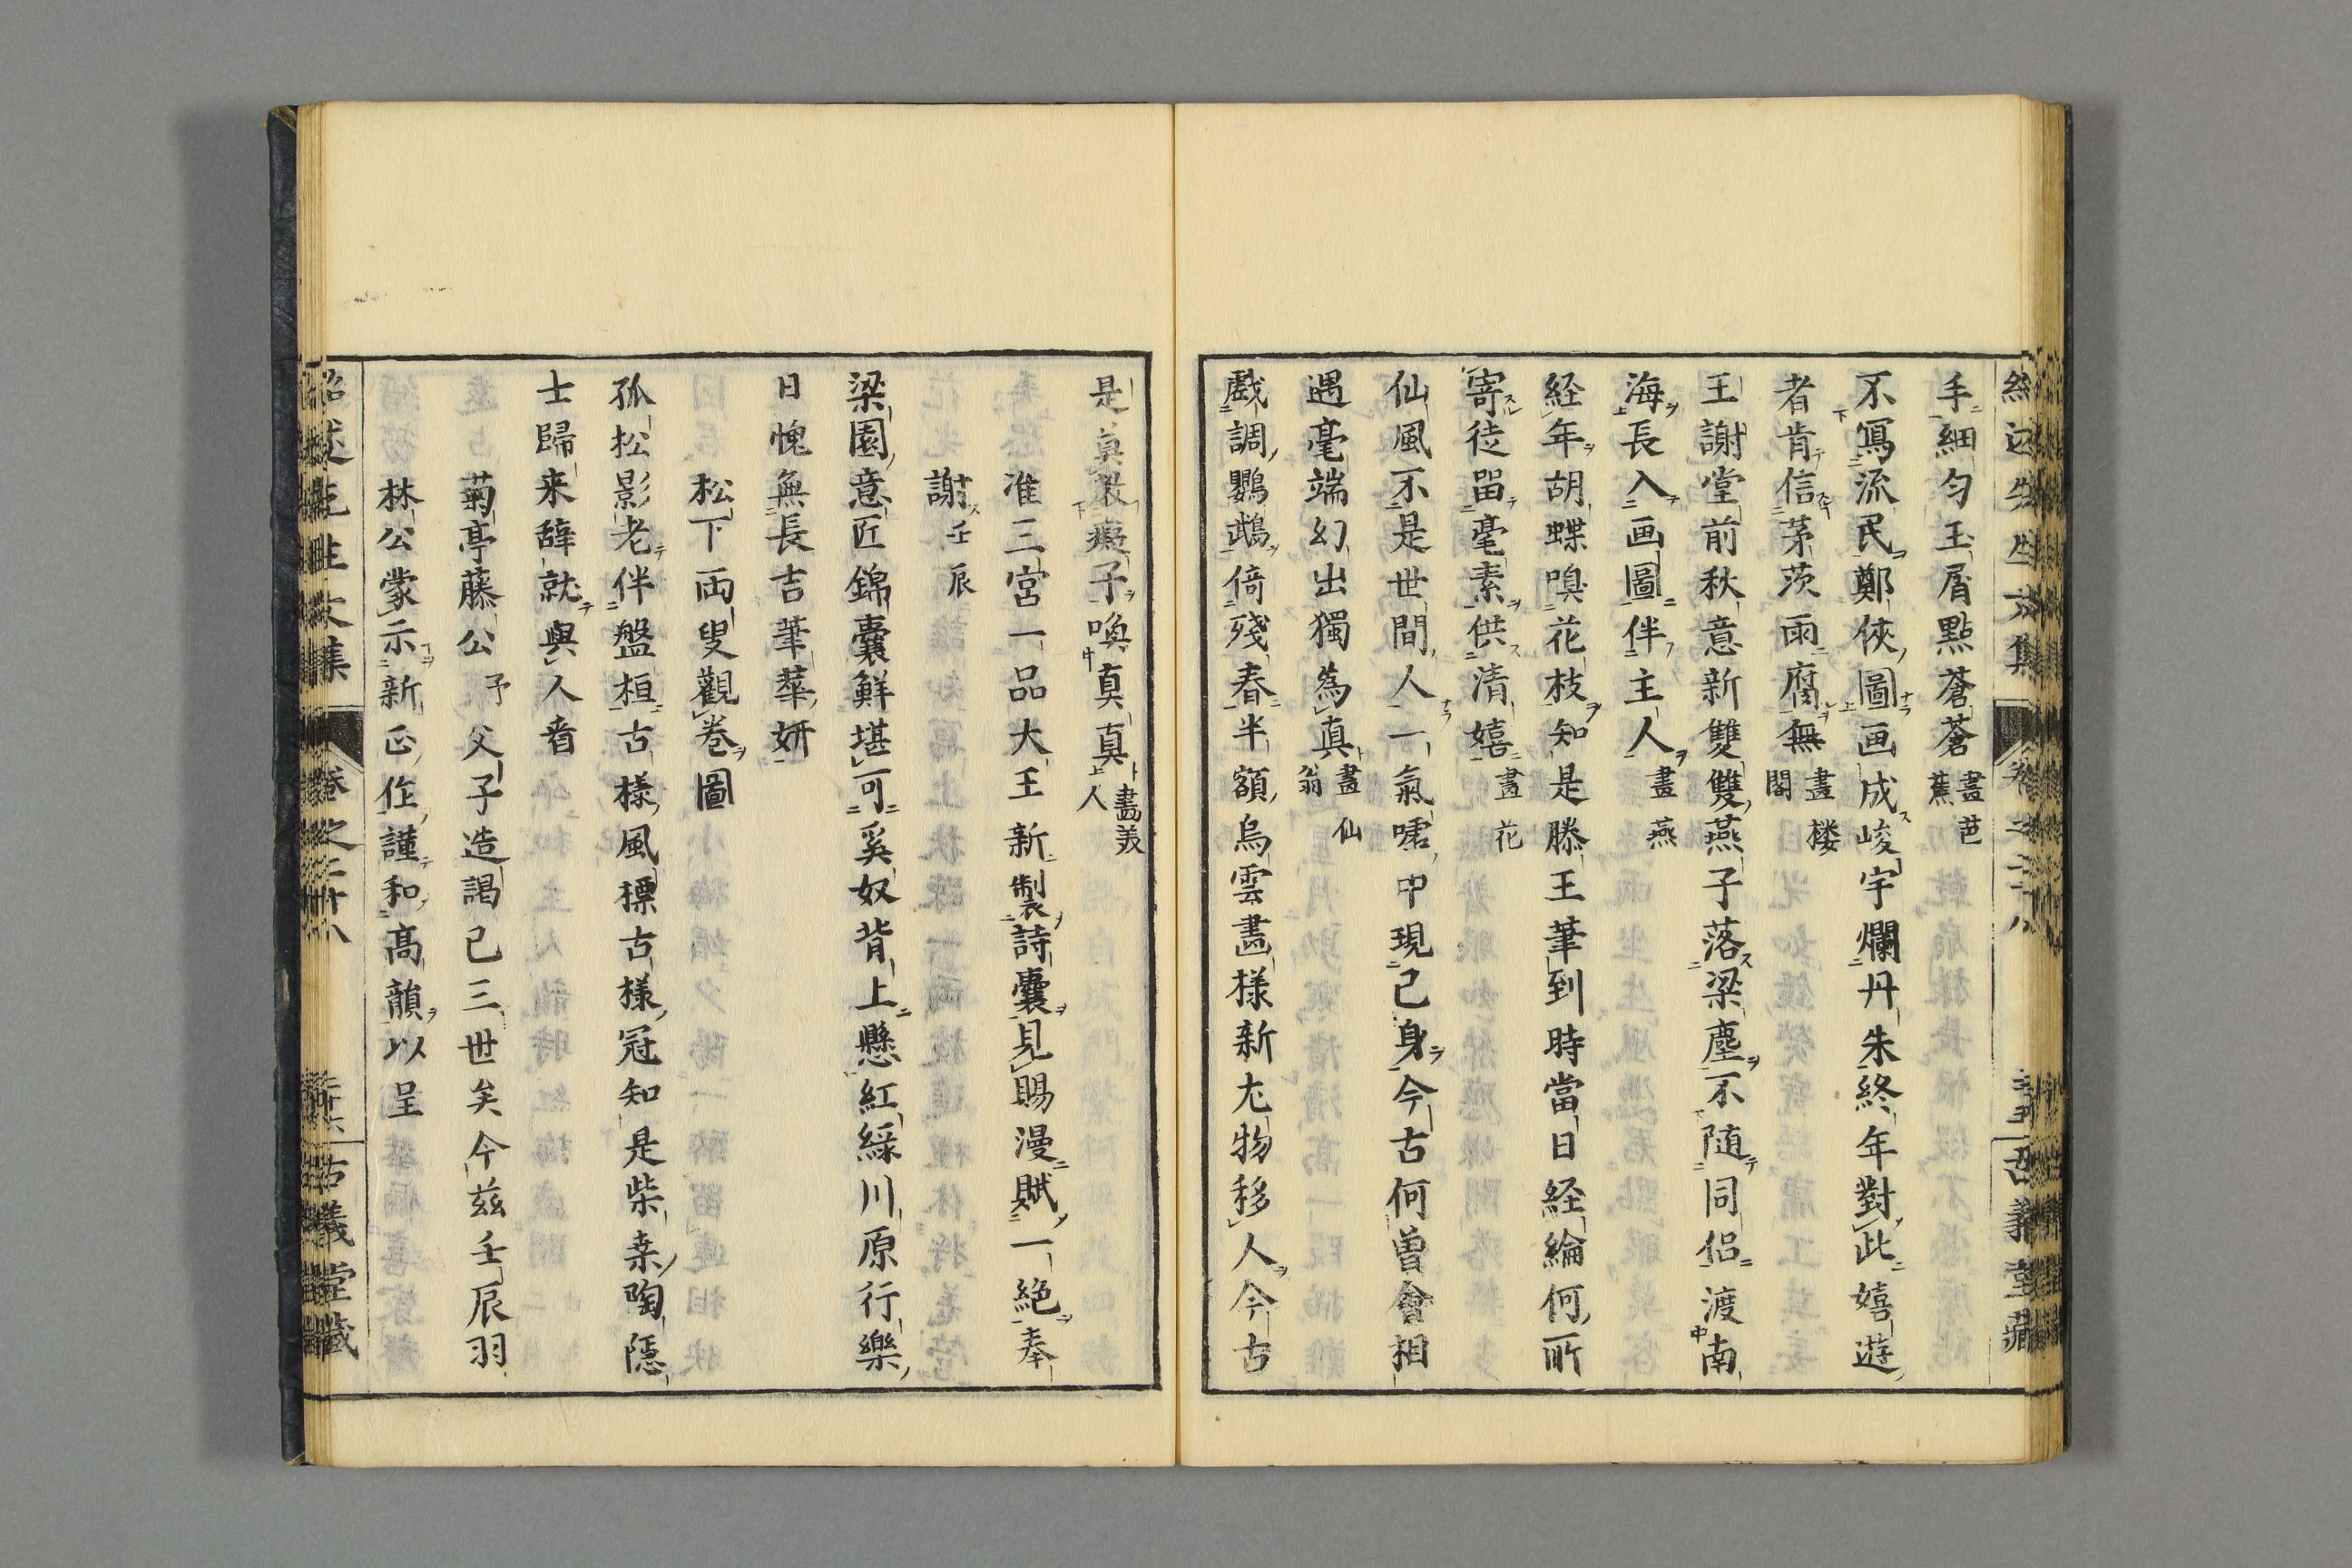 手細匀玉屑點蒼蒼畫芭蕉
不寫流民鄭俠圖画成峻宇爛丹朱終年對此嬉遊
者肯信茅茨雨腐無畫楼閣
王謝堂前秋意新雙雙燕子落梁塵不随同侣渡南
海長入画圖伴主人畫燕
経年胡蝶嗅花枝知是滕王筆到時當日経綸何所
寄徒留毫素供清嬉畫花
仙風不是世間人一氣嚅中現己身今古何曽會相
遇毫端幻出獨為真畫仙翁
戲調鸚鵡倚殘春半額烏雲畫様新尤物移人今古
是莫教癡子喚真真畫美人
准三宮一品大王新製詩囊見賜漫賦一絶奉
謝壬辰
梁園意匠錦囊鮮堪可奚奴背上懸紅緑川原行樂
日愧無長吉筆華妍
松下両叟觀卷圖
孤松影老伴盤桓古様風標古様冠知是柴桒陶隠
士歸来辞就與人㸔
菊亭藤公予父子造謁已三世矣今兹壬辰羽
林公蒙示新正作謹和高韻以呈
紹述先生文集
卷之二十八
二十六
古義堂藏